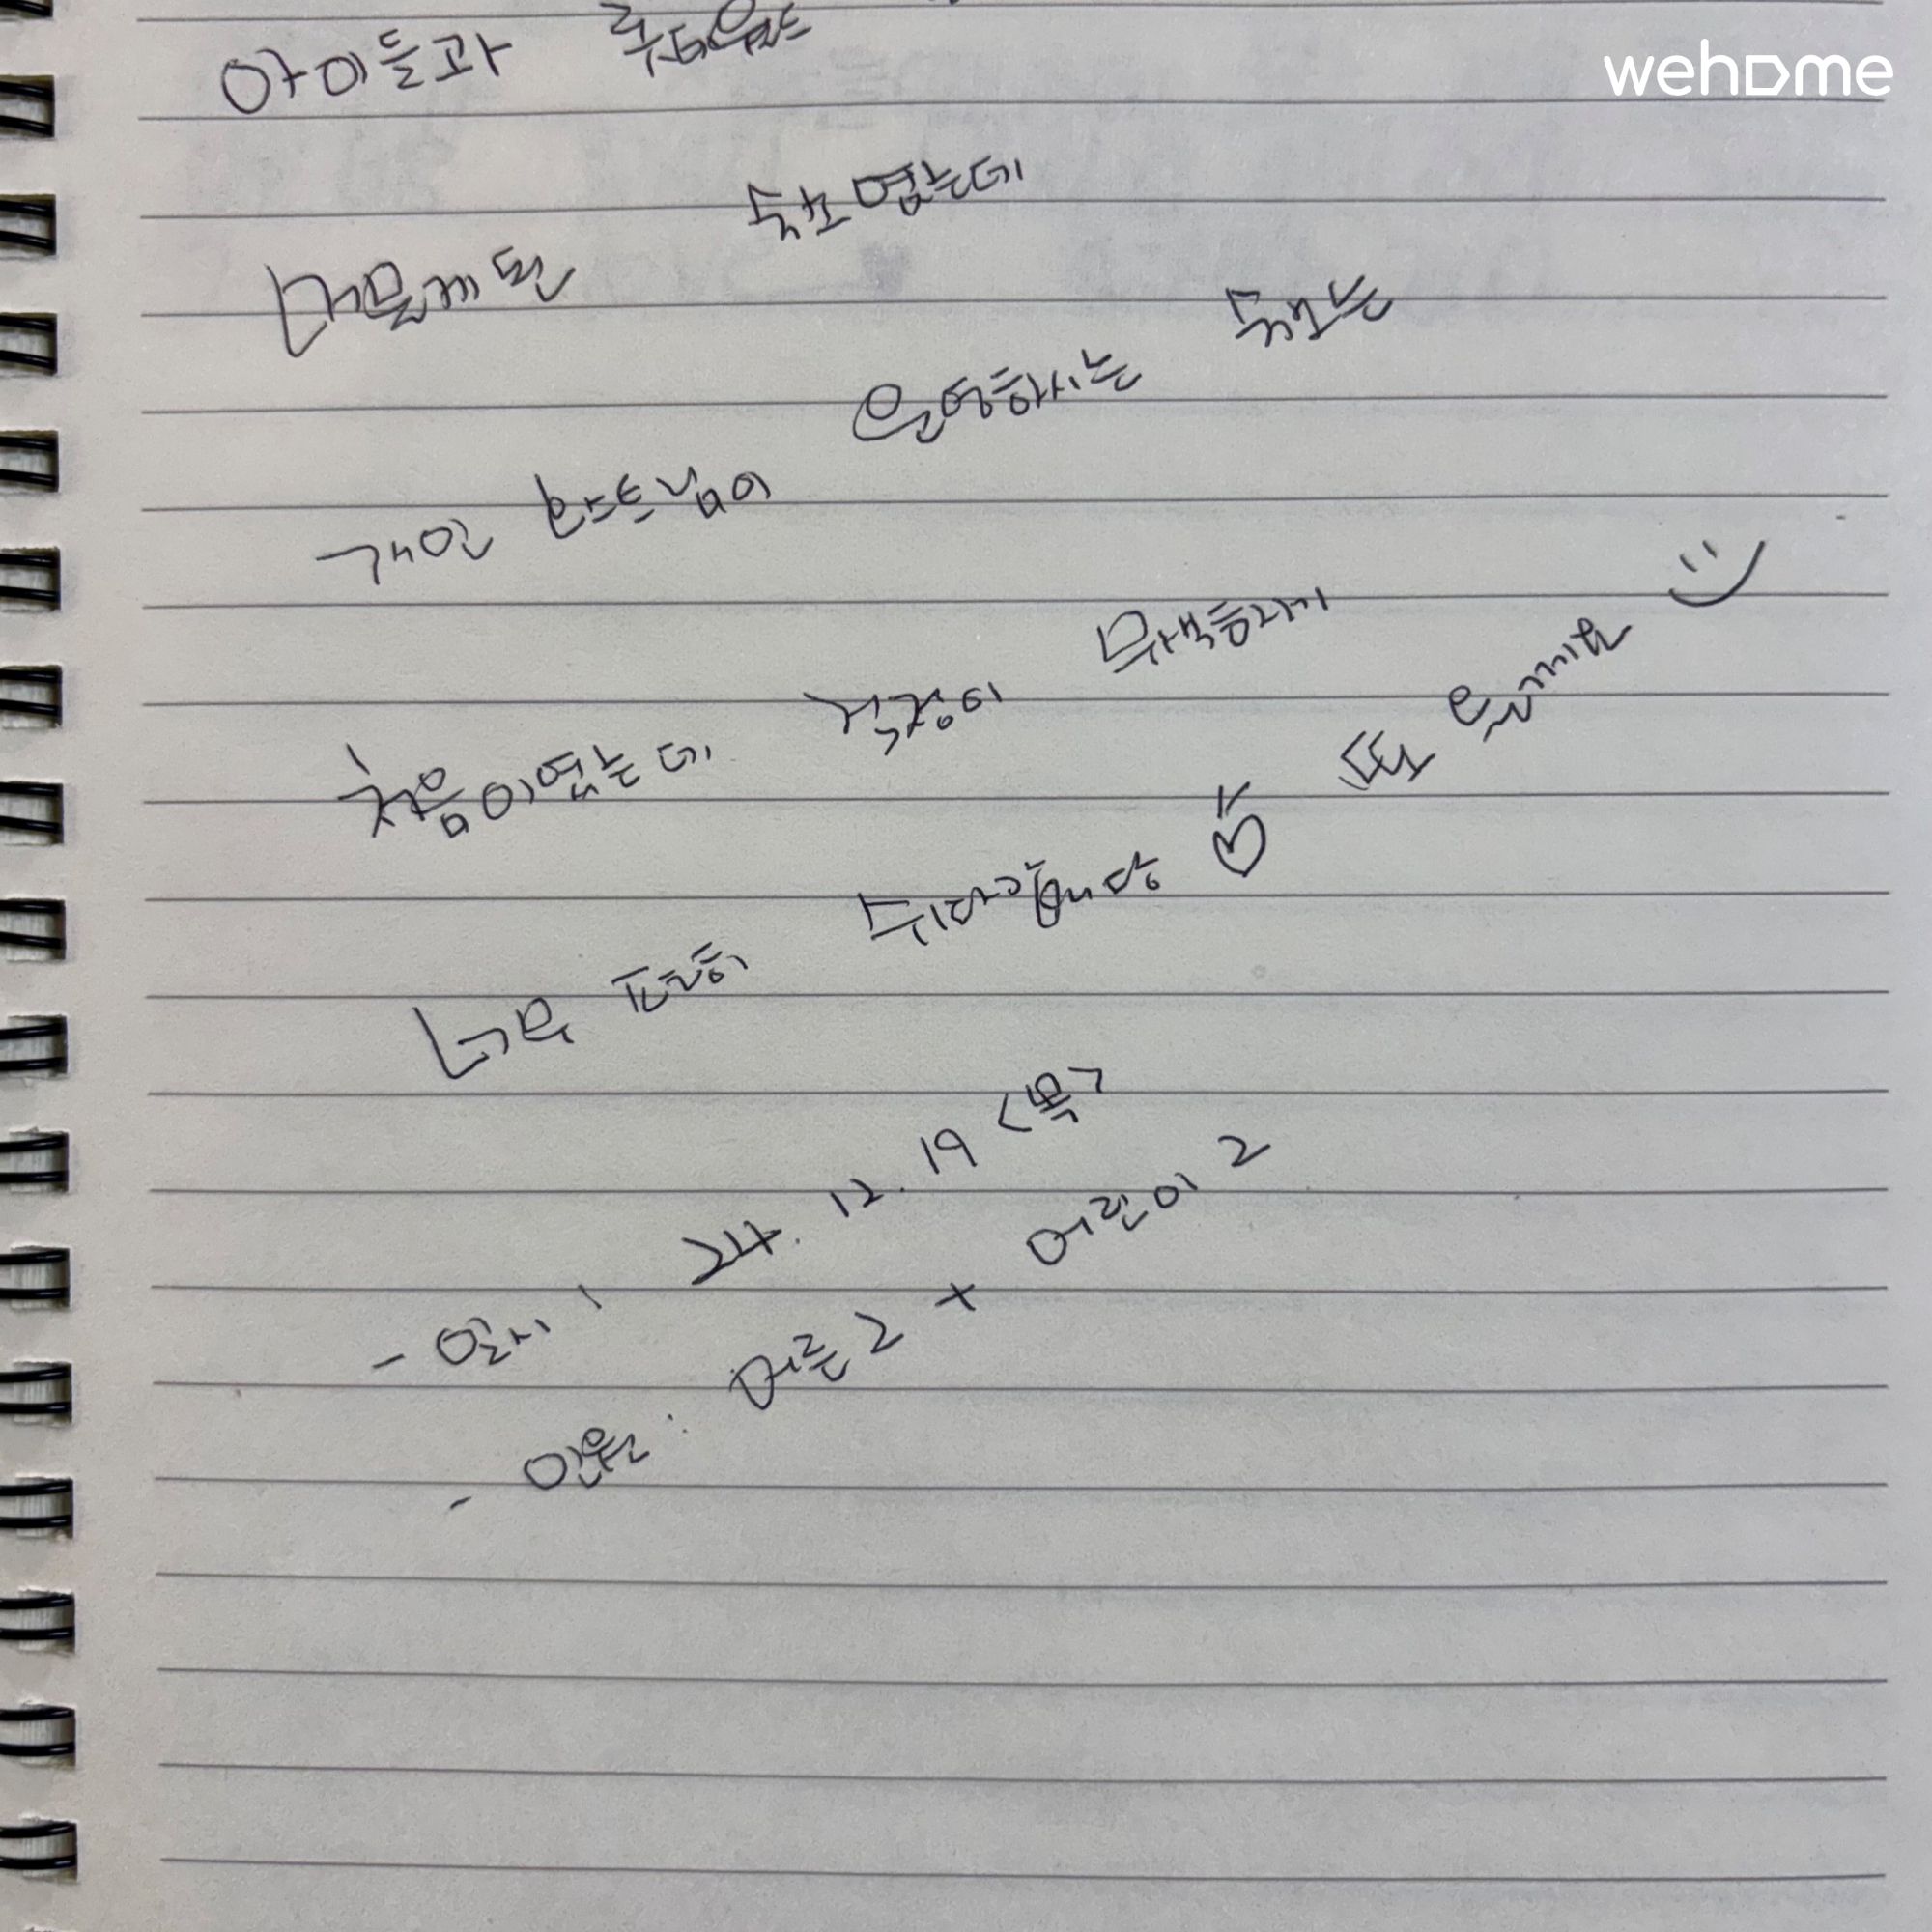 wehome
아이들과
머물게된 숙소였는데
개인 호스트님이 운영하시는 숙소는
처음이였는데 걱정이 무색하게
너무 편히 쉬다갑니당♡ 또 올게요
- 일시 : 24. 12. 19 <목>
- 인원 : 어른 2 + 어린이 2